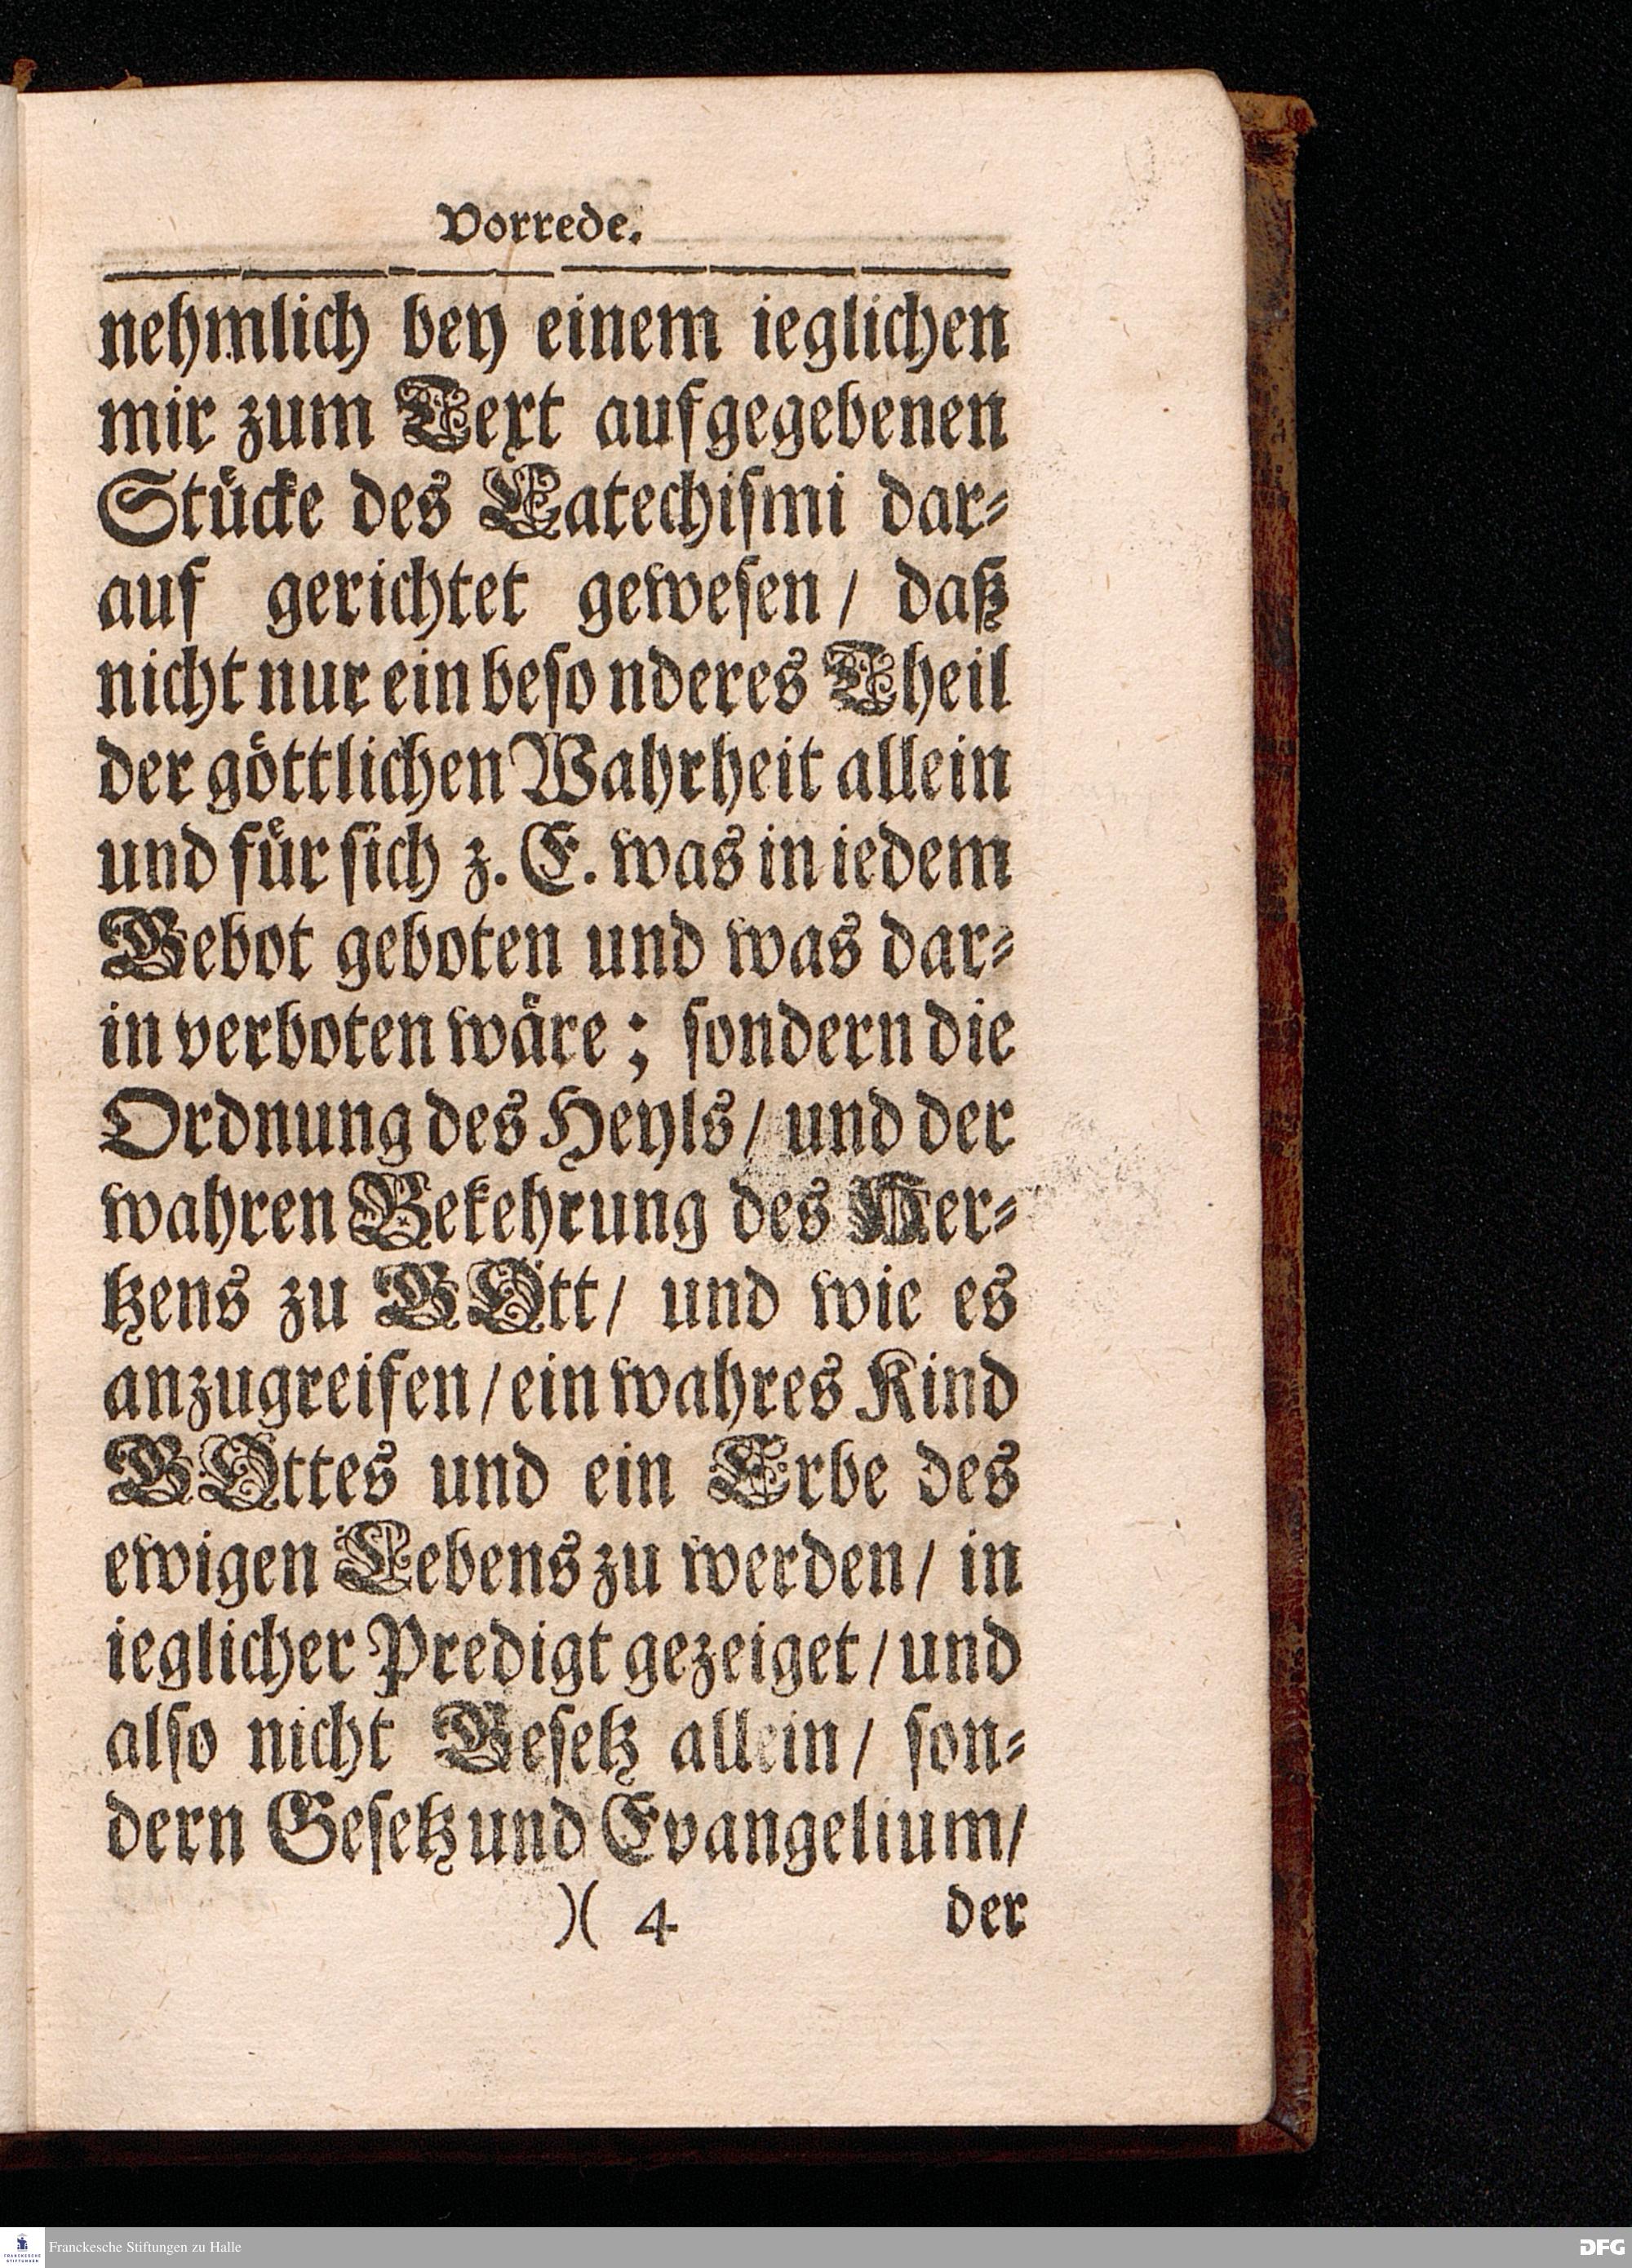 Vorrede.
nehmlich bey einem ieglichen
mir zum Text aufgegebenen
Stücke des Catechismi dar-
auf gerichtet gewesen / daß
nicht nur ein besonderes Theil
der göttlichen Wahrheit allein
und für sich z. E. was in iedem
Gebot geboten und was dar-
in verboten wäre; sondern die
Ordnung des Heyls / und der
wahren Bekehrung des Her-
tzens zu GOtt / und wie es
anzugreifen / ein wahres Kind
GOttes und ein Erbe des
ewigen Lebens zu werden / in
ieglicher Predigt gezeiget / und
also nicht Gesetz allein / son-
dern Gesetz und Evangelium /
)( 4 der
FRANCKESCHE STIFTUNGEN
Franckesche Stiftungen zu Halle
DFG